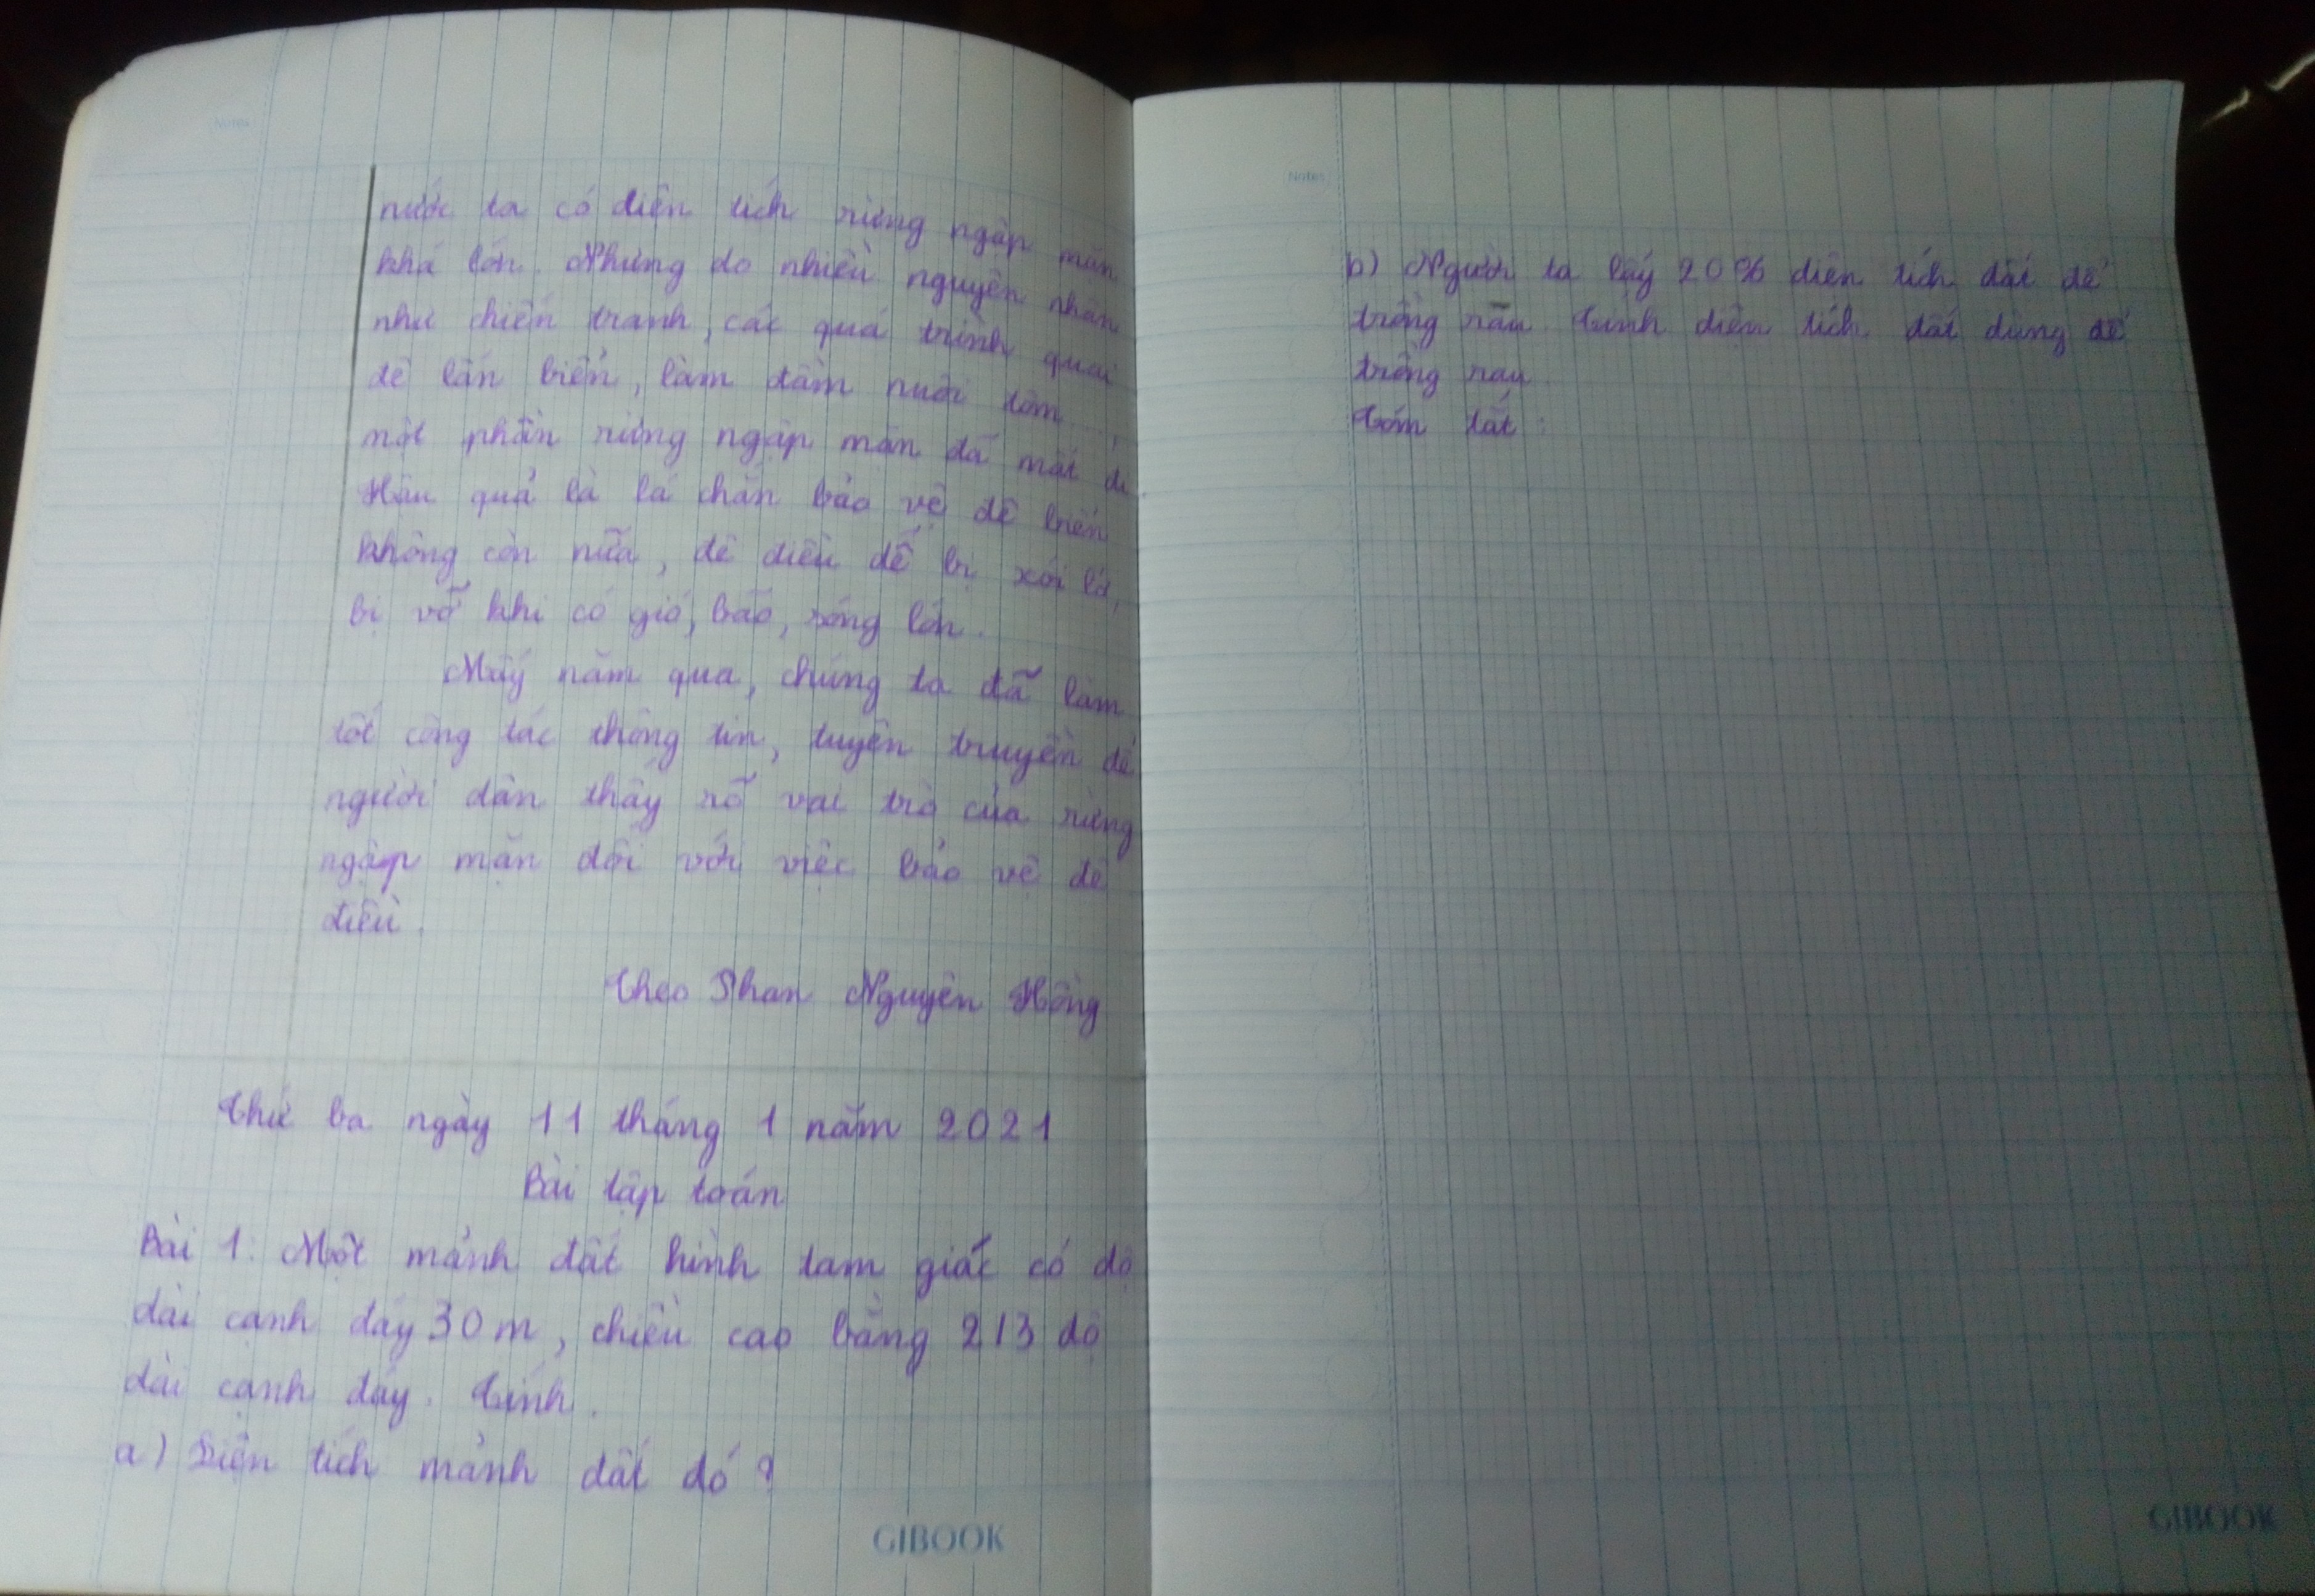 Notes
nước ta có diện tích rừng ngập mặn
khá lớn. Nhưng do nhiều nguyên nhân
như chiến tranh, các quá trình quai
đê lấn biển, làm đầm nuôi tôm...,
một phần rừng ngập mặn đã mất đi.
Hậu quả là lá chắn bảo vệ đê biển
không còn nữa, đê điều dễ bị xói lở,
bị vỡ khi có gió, bão, sóng lớn.
Mấy năm qua, chúng ta đã làm
tốt công tác thông tin, tuyên truyền để
người dân thấy rõ vai trò của rừng
ngập mặn đối với việc bảo vệ đê
điều.
Theo Phan Nguyên Hồng
Thứ ba ngày 11 tháng 1 năm 2021
Bài tập toán
Bài 1: Một mảnh đất hình tam giác có độ
dài cạnh đáy 30m, chiều cao bằng 2/3 độ
dài cạnh đáy. Tính.
a) Diện tích mảnh đất đó?
GIBOOK
Notes
b) Người ta lấy 20% diện tích đất để
trồng rau. Tính diện tích đất dùng để
trồng rau.
Tóm tắt:
GIBOOK